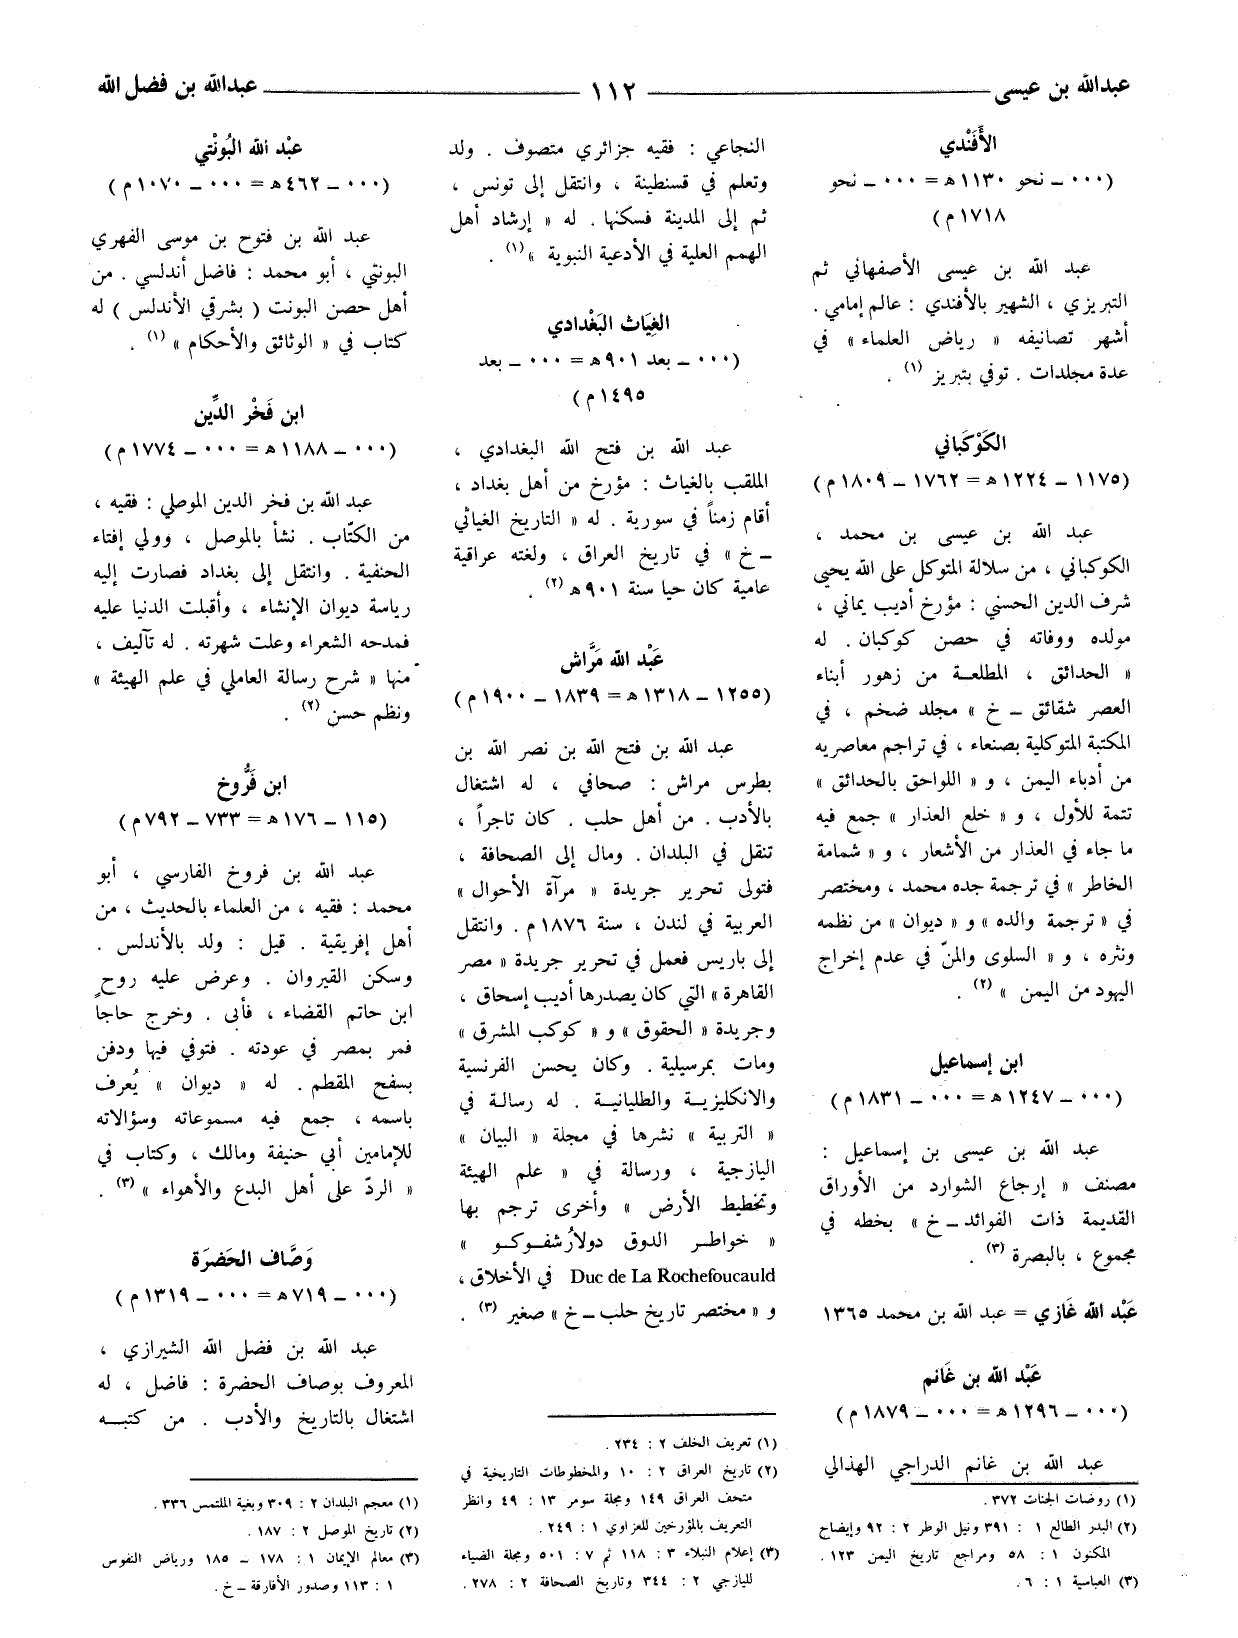 عبدالله بن عيسى ــــــ ١١٢ ــــــ عبدالله بن فضل الله
الأَفَنْدي
(٠٠٠ ـ نحو ١١٣٠ هـ = ٠٠٠ ـ نحو
١٧١٨ م)
عبد الله بن عيسى الأصفهاني ثم
التبريزي ، الشهير بالأفندي : عالم إمامي .
أشهر تصانيفه « رياض العلماء » في
عدة مجلدات . توفي بتبريز (١) .
الكَوْكَباني
(١١٧٥ ـ ١٢٢٤ هـ = ١٧٦٢ ـ ١٨٠٩ م)
عبد الله بن عيسى بن محمد ،
الكوكباني ، من سلالة المتوكل على الله يحيى
شرف الدين الحسني : مؤرخ أديب يماني ،
مولده ووفاته في حصن كوكبان . له
« الحدائق ، المطلعة من زهور أبناء
العصر شقائق ـ خ » مجلد ضخم ، في
المكتبة المتوكلية بصنعاء ، في تراجم معاصريه
من أدباء اليمن ، و « اللواحق بالحدائق »
تتمة للأول ، و « خلع العذار » جمع فيه
ما جاء في العذار من الأشعار ، و « شمامة
الخاطر » في ترجمة جده محمد ، ومختصر
في « ترجمة والده » و « ديوان » من نظمه
ونثره ، و « السلوى والمنّ في عدم إخراج
اليهود من اليمن » (٢) .
ابن إسماعيل
(٠٠٠ ـ ١٢٤٧ هـ = ٠٠٠ ـ ١٨٣١ م)
عبد الله بن عيسى بن إسماعيل :
مصنف « إرجاع الشوارد من الأوراق
القديمة ذات الفوائد ـ خ » بخطه في
مجموع ، بالبصرة (٣) .
عَبْد الله غَازي = عبد الله بن محمد ١٣٦٥
عَبْد الله بن غَانم
(٠٠٠ ـ ١٢٩٦ هـ = ٠٠٠ ـ ١٨٧٩ م)
عبد الله بن غانم الدراجي الهذالي
(١) روضات الجنات ٣٧٢ .
(٢) البدر الطالع ١ : ٣٩١ ونيل الوطر ٢ : ٩٢ وإيضاح
المكنون ١ : ٥٨ ومراجع تاريخ اليمن ١٢٣ .
(٣) العباسية ١ : ٦ .
النجاعي : فقيه جزائري متصوف . ولد
وتعلم في قسنطينة ، وانتقل إلى تونس ،
ثم إلى المدينة فسكنها . له « إرشاد أهل
الهمم العلية في الأدعية النبوية » (١) .
الغِيَاث البَغْدادي
(٠٠٠ ـ بعد ٩٠١ هـ = ٠٠٠ ـ بعد
١٤٩٥ م)
عبد الله بن فتح الله البغدادي ،
الملقب بالغياث : مؤرخ من أهل بغداد ،
أقام زمناً في سورية . له « التاريخ الغياثي
ـ خ » في تاريخ العراق ، ولغته عراقية
عامية كان حيا سنة ٩٠١ هـ (٢) .
عَبْد الله مَرَّاش
(١٢٥٥ ـ ١٣١٨ هـ = ١٨٣٩ ـ ١٩٠٠ م)
عبد الله بن فتح الله بن نصر الله بن
بطرس مراش : صحافي ، له اشتغال
بالأدب . من أهل حلب . كان تاجراً ،
تنقل في البلدان . ومال إلى الصحافة ،
فتولى تحرير جريدة « مرآة الأحوال »
العربية في لندن ، سنة ١٨٧٦ م . وانتقل
إلى باريس فعمل في تحرير جريدة « مصر
القاهرة » التي كان يصدرها أديب إسحاق ،
وجريدة « الحقوق » و « كوكب المشرق »
ومات بمرسيلية . وكان يحسن الفرنسية
والانكليزية والطليانية . له رسالة في
« التربية » نشرها في مجلة « البيان »
اليازجية ، ورسالة في « علم الهيئة
وتخطيط الأرض » وأخرى ترجم بها
« خواطر الدوق دولارُشفوكو »
Duc de La Rochefoucauld في الأخلاق ،
و « مختصر تاريخ حلب ـ خ » صغير (٣) .
(١) تعريف الخلف ٢ : ٢٣٤ .
(٢) تاريخ العراق ٢ : ١٠ والمخطوطات التاريخية في
متحف العراق ١٤٩ ومجلة سومر ١٣ : ٤٩ وانظر
التعريف بالمؤرخين للعزاوي ١ : ٢٤٩ .
(٣) إعلام النبلاء ٣ : ١١٨ ثم ٧ : ٥٠١ ومجلة الضياء
لليازجي ٢ : ٣٤٤ وتاريخ الصحافة ٢ : ٢٧٨ .
عبْد الله البُونْتي
(٠٠٠ ـ ٤٦٢ هـ = ٠٠٠ ـ ١٠٧٠ م)
عبد الله بن فتوح بن موسى الفهري
البونتي ، أبو محمد : فاضل أندلسي . من
أهل حصن البونت ( بشرقي الأندلس ) له
كتاب في « الوثائق والأحكام » (١) .
ابن فَخْر الدِّين
(٠٠٠ ـ ١١٨٨ هـ = ٠٠٠ ـ ١٧٧٤ م)
عبد الله بن فخر الدين الموصلي : فقيه ،
من الكتّاب . نشأ بالموصل ، وولي إفتاء
الحنفية . وانتقل إلى بغداد فصارت إليه
رياسة ديوان الإنشاء ، وأقبلت الدنيا عليه
فمدحه الشعراء وعلت شهرته . له تآليف ،
منها « شرح رسالة العاملي في علم الهيئة »
ونظم حسن (٢) .
ابن فَرُّوخ
(١١٥ ـ ١٧٦ هـ = ٧٣٣ ـ ٧٩٢ م)
عبد الله بن فروخ الفارسي ، أبو
محمد : فقيه ، من العلماء بالحديث ، من
أهل إفريقية . قيل : ولد بالأندلس .
وسكن القيروان . وعرض عليه روح
ابن حاتم القضاء ، فأبى . وخرج حاجا
فمر بمصر في عودته . فتوفي فيها ودفن
بسفح المقطم . له « ديوان » يُعرف
باسمه ، جمع فيه مسموعاته وسؤالاته
للإمامين أبي حنيفة ومالك ، وكتاب في
« الردّ على أهل البدع والأهواء » (٣) .
وَصَّاف الحَضرَة
(٠٠٠ ـ ٧١٩ هـ = ٠٠٠ ـ ١٣١٩ م)
عبد الله بن فضل الله الشيرازي ،
المعروف بوصاف الحضرة : فاضل ، له
اشتغال بالتاريخ والأدب . من كتبه
(١) معجم البلدان ٢ : ٣٠٩ وبغية الملتمس ٣٣٦ .
(٢) تاريخ الموصل ٢ : ١٨٧ .
(٣) معالم الإيمان ١ : ١٧٨ ـ ١٨٥ ورياض النفوس
١ : ١١٣ وصدور الأفارقة ـ خ .